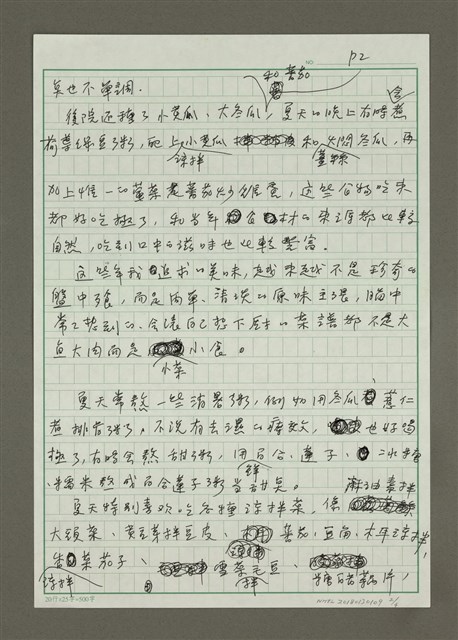 P2
NO
和蕃茄
吳也不單調。
後院還種了小黃瓜、大冬瓜,夏天的晚上有時會煮
荷葉綠豆粥,配上涼拌小黃瓜 和薑絲燜冬瓜,再
加上唯一的葷菜是蕃茄炒雞蛋,這些食物吃來
都好吃極了,和當年 食材的來源都比較
自然,吃到口中的滋味也比較豐富。
這些年我追求的美味,越來越不是珍奇的
盤中飧,而是肉單、清淡的原味主張,腦中
常 想到的、會讓自己想下廚的菜譜都不是大
魚大肉而是 小食。
小菜
夏天常熬一些消暑粥,例如用冬瓜、薏仁
煮排骨粥,不說有去濕的療效, 也好喝
極了,有時會熬甜粥,用百合、鮮蓮子、 冰糖
、糯米熬成百合蓮子粥當甜食。
夏天特別喜歡吃各種涼拌菜,像麻油薑拌
大頭菜、黃豆芽拌豆皮、 蕃茄、豆角、木耳涼拌,
涼拌 菜茄子、 雪菜毛豆、 糖醋藕片,
20×25=500字